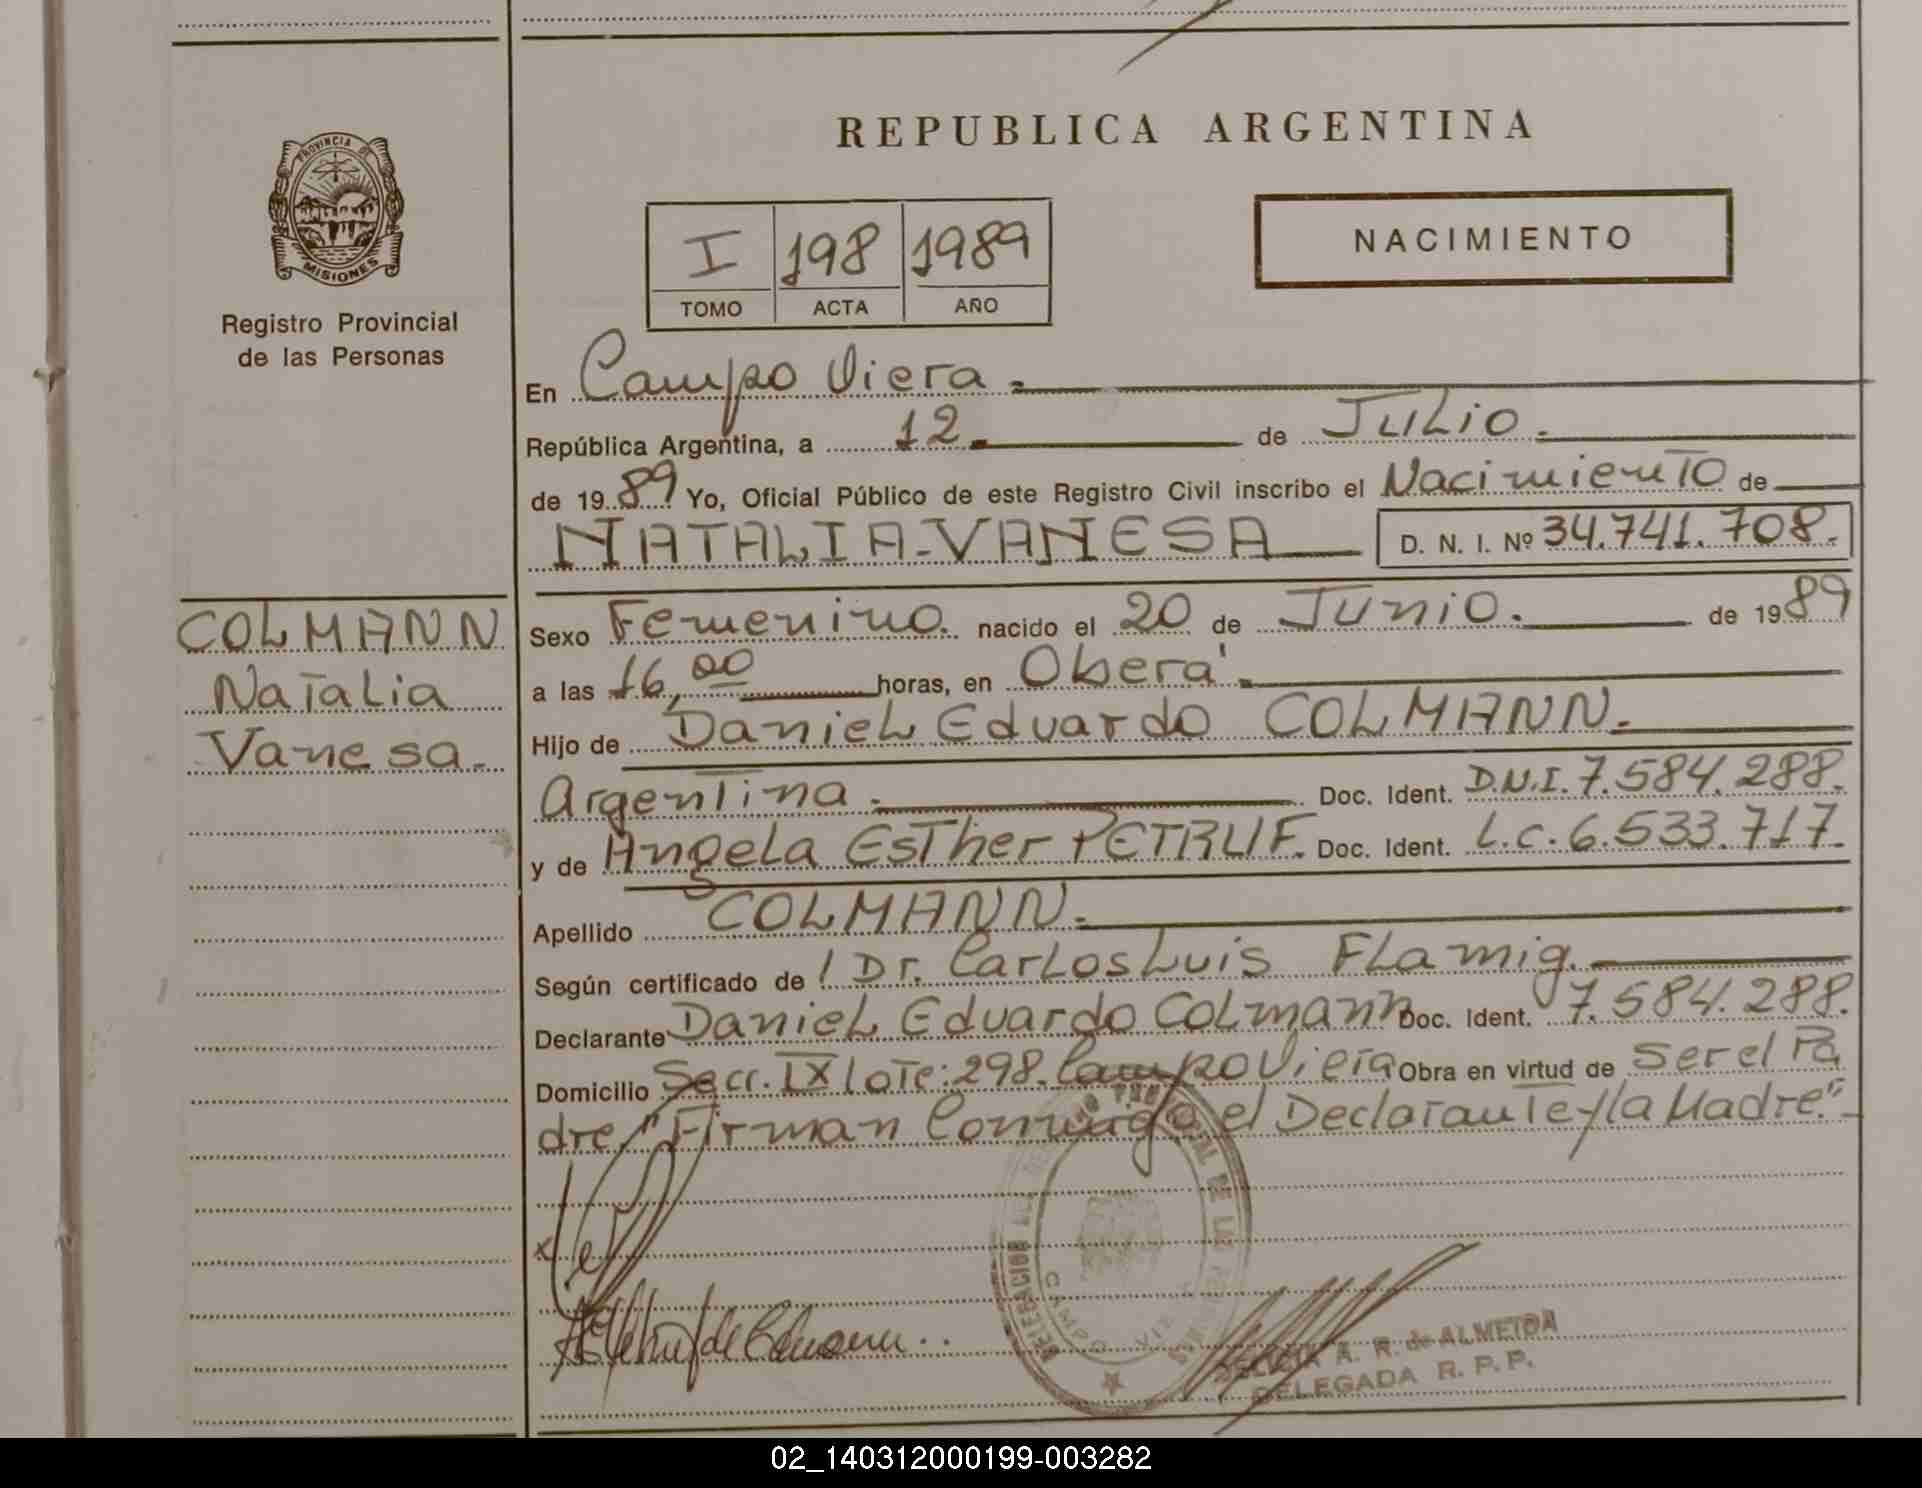 REPUBLICA ARGENTINA
PROVINCIA DE
MISIONES
Registro Provincial
de las Personas
I 198 1989
TOMO ACTA AÑO
NACIMIENTO
En Campo Viera.
República Argentina, a 12 de Julio.
de 1989 Yo, Oficial Público de este Registro Civil inscribo el Nacimiento de
NATALIA-VANESA D. N. I. Nº 34.741.708.
COLMANN
Natalia
Vanesa.
Sexo Femenino. nacido el 20 de Junio. de 1989
a las 16,00 horas, en Oberá.
Hijo de Daniel Eduardo COLMANN.
Argentina. Doc. Ident. D.N.I. 7.584.288.
y de Angela Esther PETRUF. Doc. Ident. L.C. 6.533.717.
Apellido COLMANN.
Según certificado de Dr. Carlos Luis Flamig.
Declarante Daniel Eduardo Colmann Doc. Ident. 7.584.288.
Domicilio Secc. IX lote: 298. Campo Viera Obra en virtud de ser el Pa
dre. "Firman Conmigo el Declarante y la Madre".
DELEGACION DEL REGISTRO PROVINCIAL DE LAS PERSONAS
CAMPO VIERA
A. R. de ALMEIDA
DELEGADA R. P. P.
02_140312000199-003282